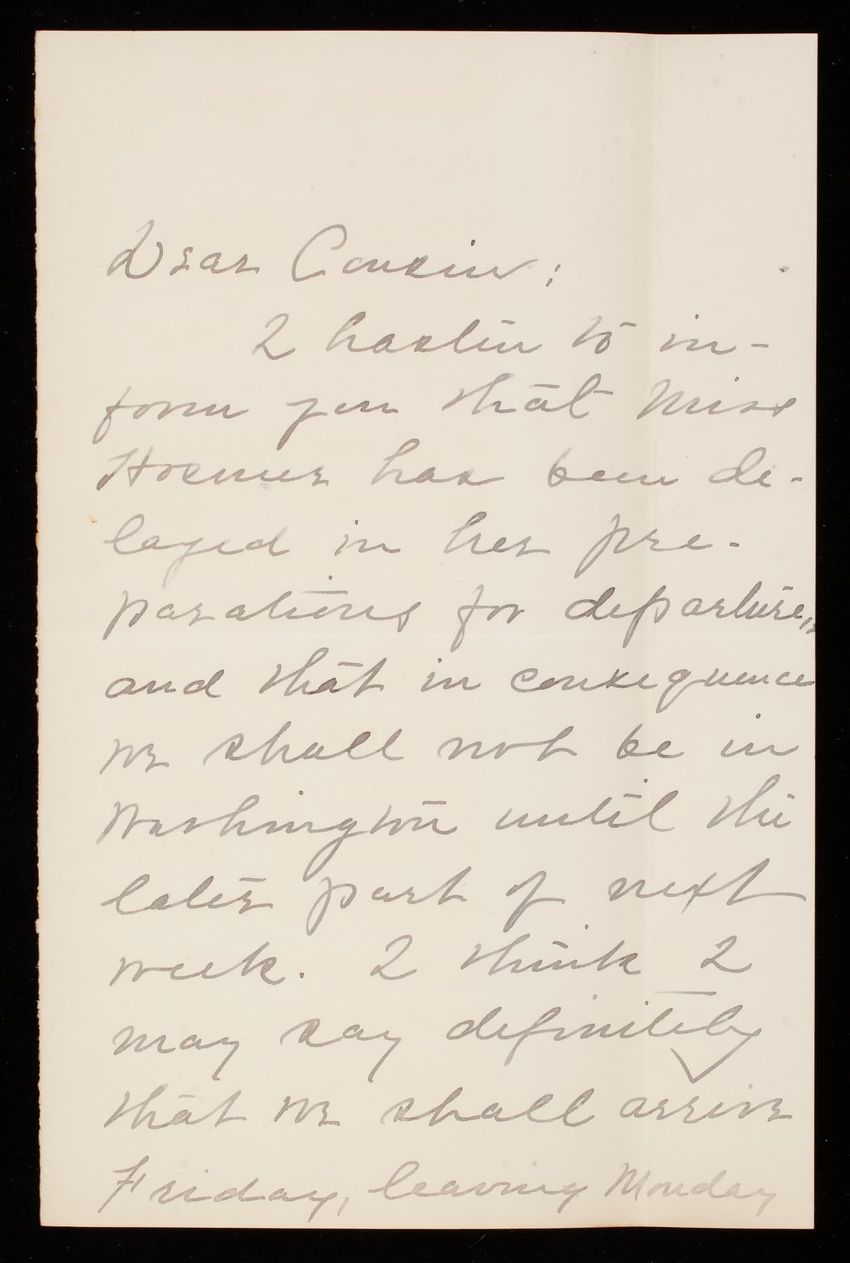 Dear Cousin;
I hasten to in-
form you that Miss
Hosmer has been de-
layed in her pre-
parations for departure,
and that in consequence
we shall not be in
Washington until the
later part of next
week. I think I
may say definitely
that we shall arrive
Friday, leaving Monday